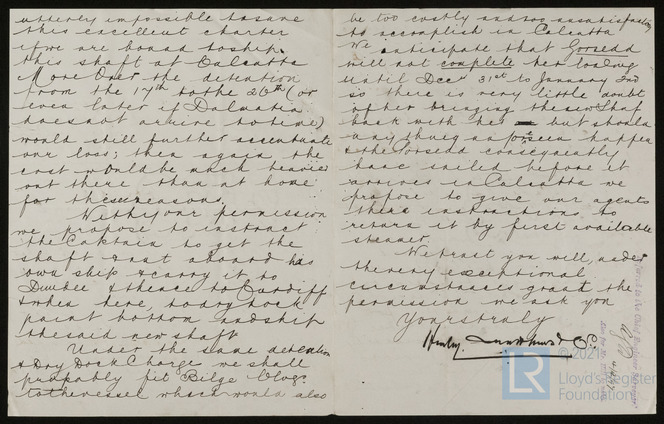 utterly impossible to save
this excellent charter
if we are bound to ship
this shaft at Calcutta
More Over the detention
from the 17th to the 26th (or
even later if Dalmatia
does not arrive to time)
would still further accentuate
our loss; then again the
cost would be much heavier
out there than at home
for these reasons.
With your permission
we propose to instruct
the Captain to get the
shaft put aboard his
own ship & carry it to
Dundee & thence to Cardiff
& when here, to dry dock
paint bottom and ship
the said new shaft
Under the same detention
& Dry Dock Charge we shall
probably fit Bilge
to the vessel which would also
be too costly and too unsatisfactory
to accomplish in Calcutta
We anticipate that Gorsedd
will not complete her loading
until Decr 31st to January 2nd
so there is very little doubt
of her bringing the new Shaft
back with her but should
any thing unforseen happen
& the Gorsedd consequently
have sailed before it
arrives in Calcutta we
propose to give our agents
there instructions to
return it by first available
steamer.
We trust you will, under
the very exceptional
circumstances grant the
permission we ask you
Yours truly
© 2021
LR
Lloyd's Register
Foundation